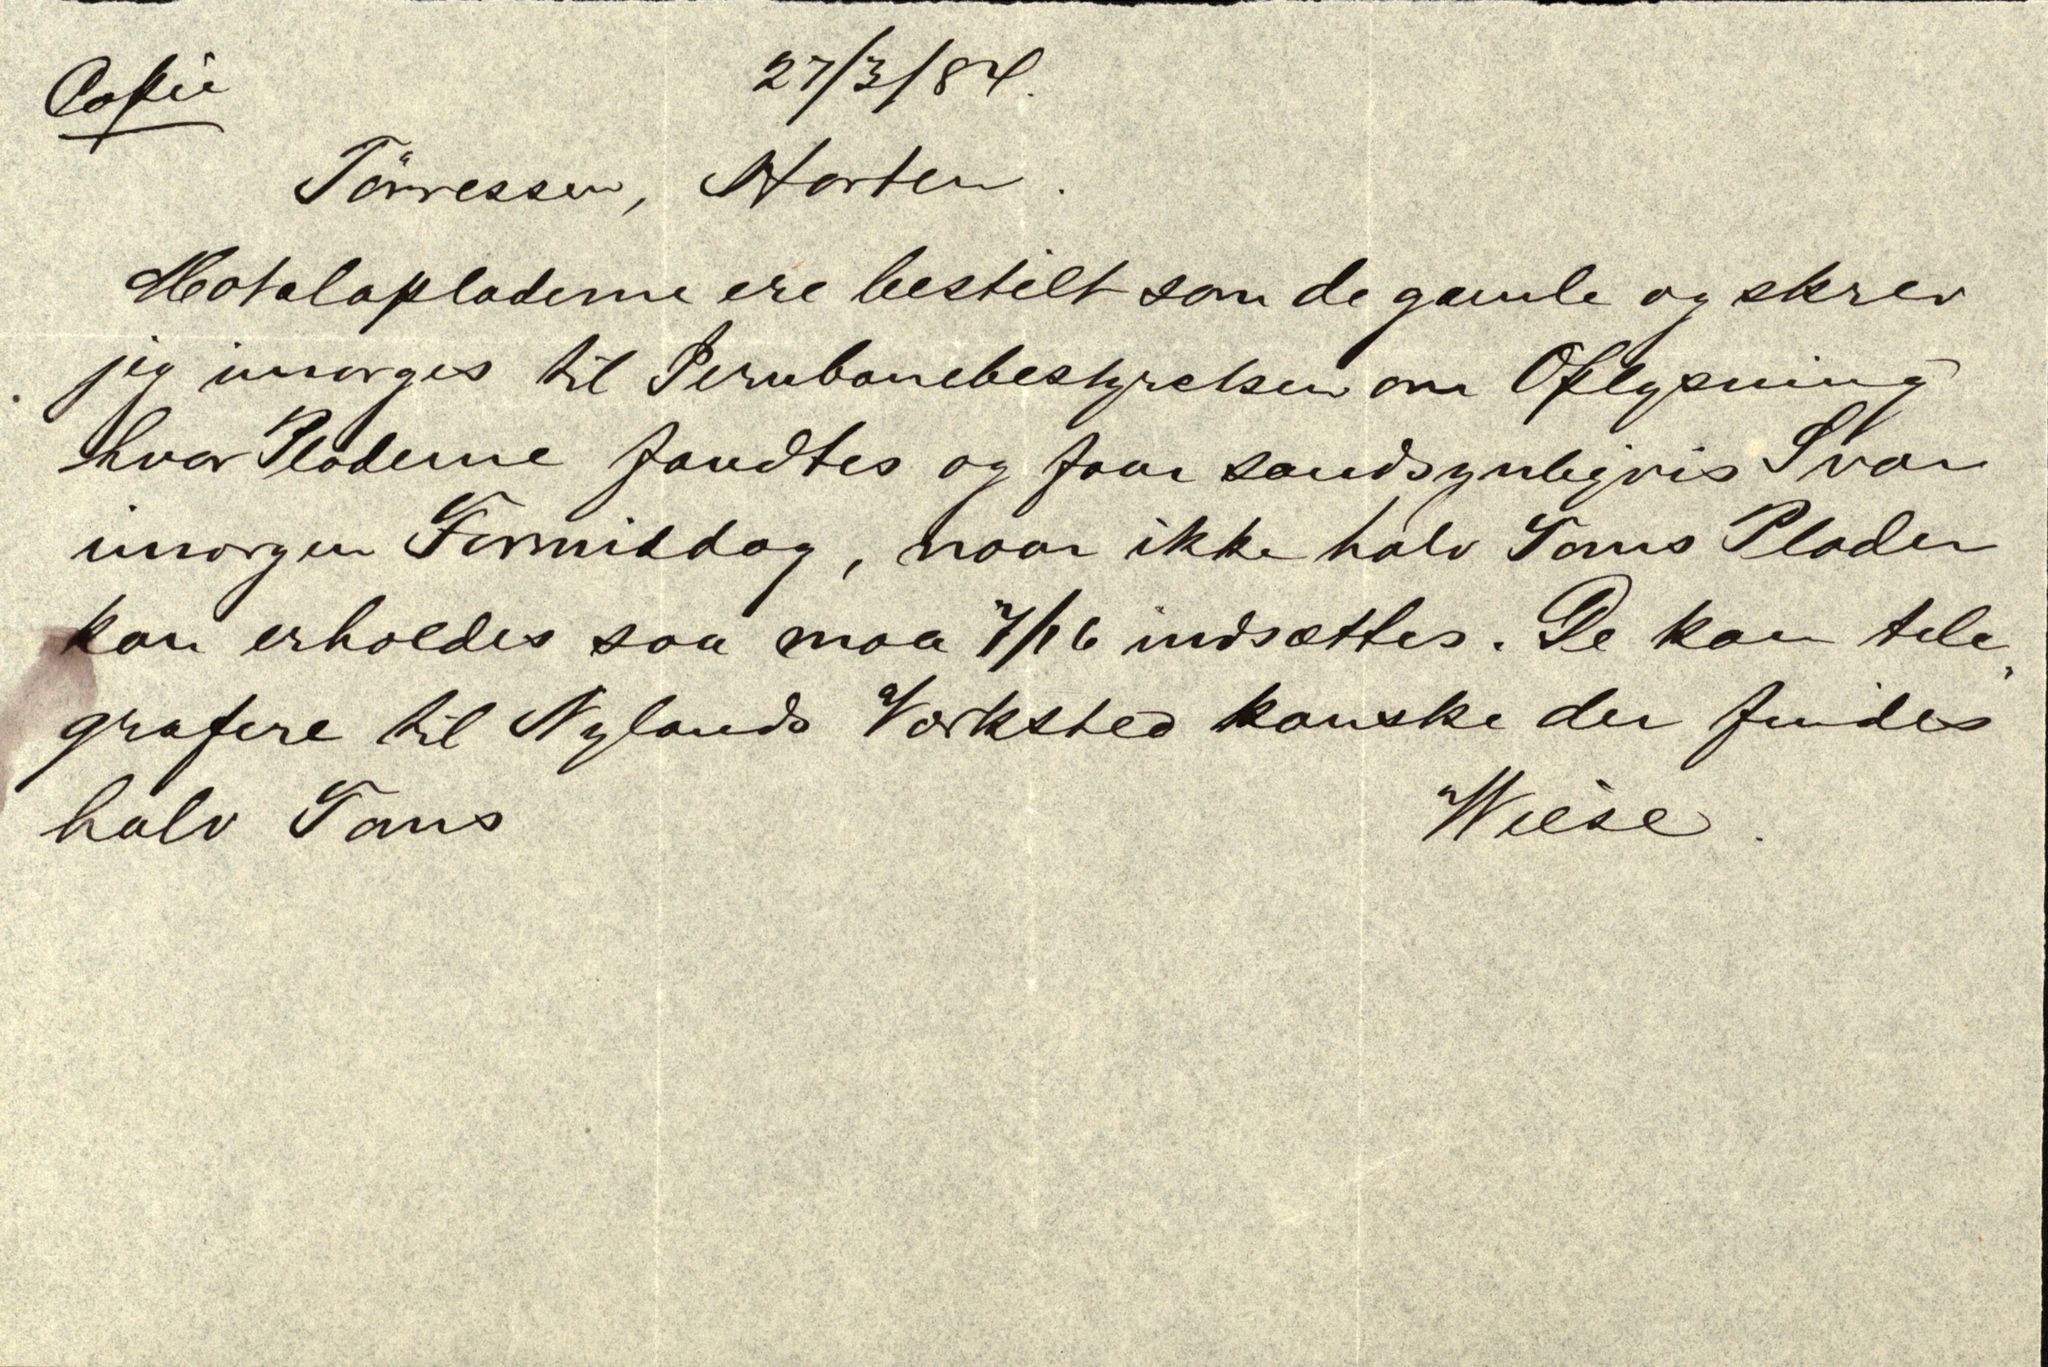 Copie
27/3/84.
Törressen, Horten.
Motalapladerne ere bestilt som de gamle og skrev
jeg imorges til Jernbanebestyrelsen om Oplysning
hvor Pladerne fandtes og faar sandsynligvis Svar
imorgen Formiddag, naar ikke halv Toms Plader
kan erholdes saa maa 7/16 indsættes. De kan tele„
grafere til Nylands Værksted kanske der findes
halv Toms
Wiese.